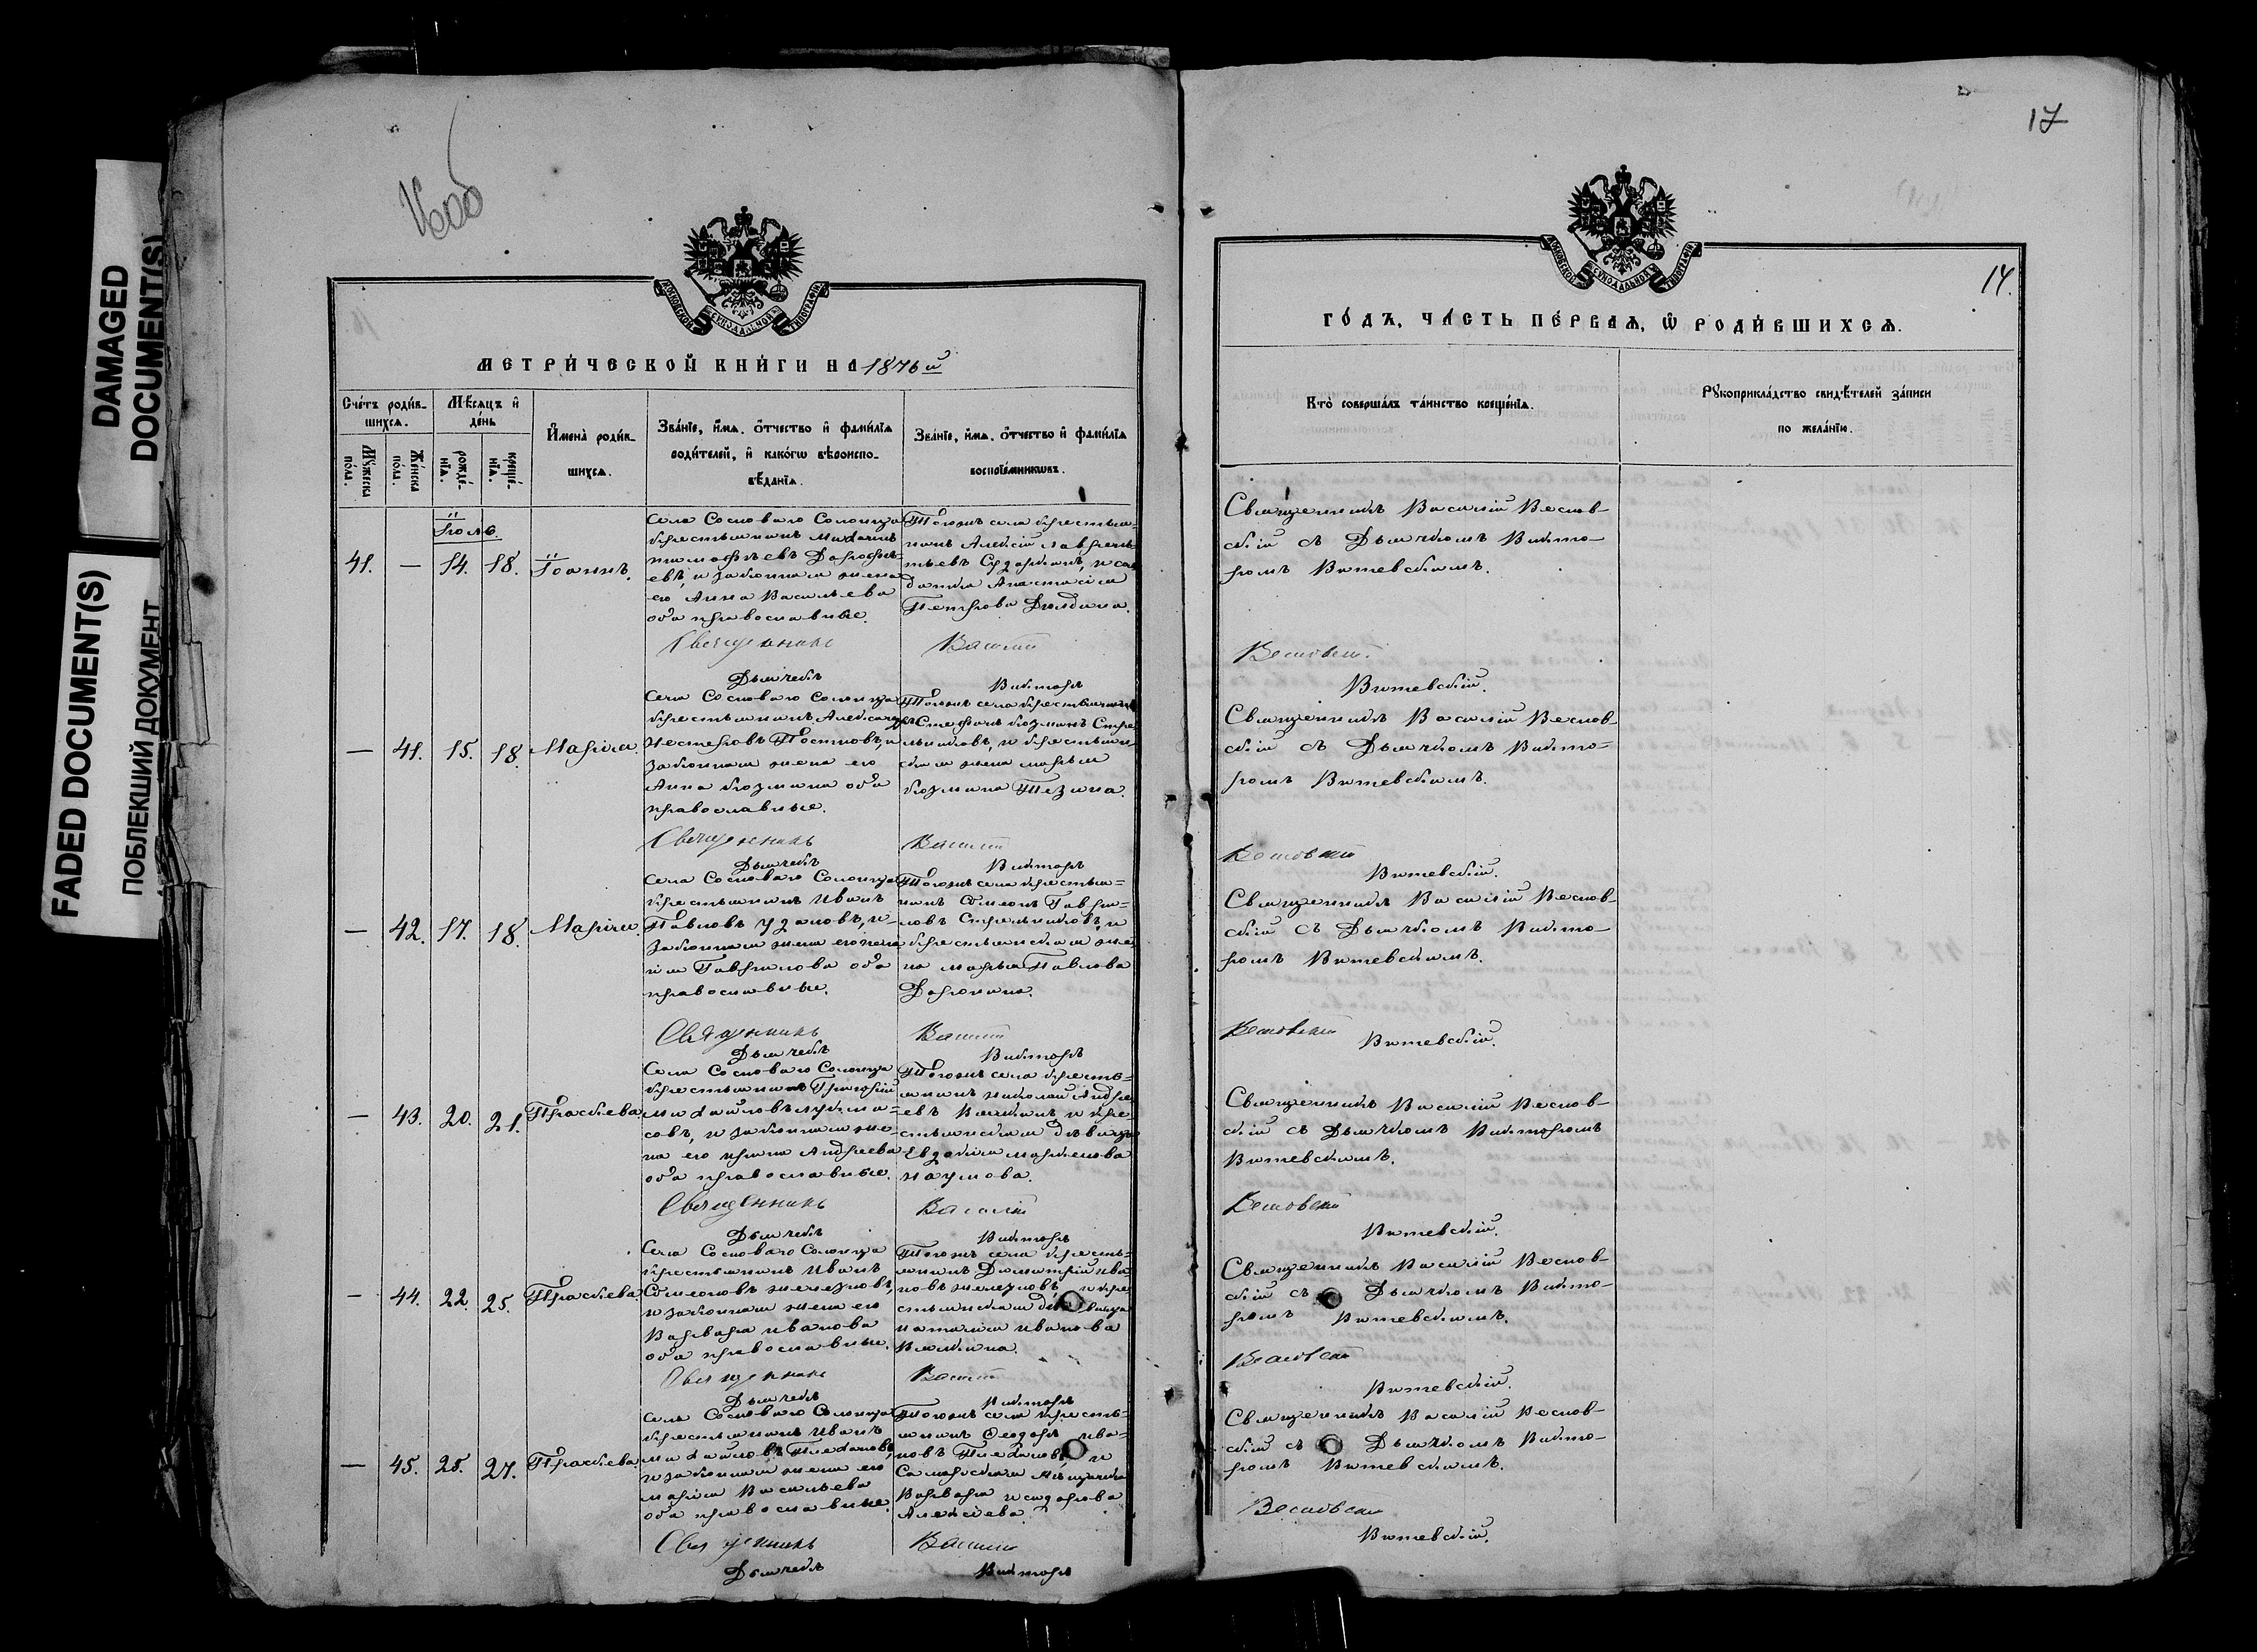 DAMAGED
DOCUMENT(S)
FADED DOCUMENT(S)
ПОБЛЕКШИЙ ДОКУМЕНТ
МОСКОВСКОЙ СѴНОДАЛЬНОЙ ТИПОГРАФІИ
МЕТРИ́ЧЕСКОЙ КНИ́ГИ НА 1876 й
Сче́тъ роди́в-
шихся.
Мѣ́сяцъ и
де́нь
Му́жеска
по́ла.
Же́нска
по́ла.
рожде́-
нїя.
креще́-
нїя.
И҆мена̀ роди́в-
шихся.
Зва́нїе, и҆́мя, ѻ҆́тчество и҆ фами́лїя
роди́телей, и҆ како́гѡ вѣ́роиспо-
вѣ́данїя.
Зва́нїе, и҆́мя, ѻ҆́тчество и҆ фами́лїя
воспрїе́мникѡвъ.
Іюль
41. — 14. 18. Іоаннъ.
Села Сосноваго Солонца
крестьянинъ Михаилъ
Тимофѣевъ Дорофѣ-
евъ, и законная жена
его Анна Васильева
оба православные.
Тогожъ села крестья-
нинъ Алексій Лаврень-
тьевъ
Анастасія
Петрова
Священникъ Василій
Дьячекъ Викторъ
— 41. 15. 18. Марія.
Села Сосноваго Солонца
крестьянинъ Александръ
Нестеровъ Постновъ, и
законная жена его
Анна Козмина оба
православные.
Тогожъ села крестьянинъ
Стефанъ Козминъ Стре-
льниковъ, и крестьян-
ская жена Марья
Козмина Тезина.
Священникъ Василій
Дьячекъ Викторъ
— 42. 17. 18. Марія.
Села Сосноваго Солонца
крестьянинъ Иванъ
Павловъ Узановъ, и
законная жена его
Гаврилова оба
православные.
Тогожъ села крестья-
нинъ Симеонъ Гаври-
ловъ Стрельниковъ, и
крестьянская же-
на Марья Павлова
Доронина.
Священникъ Василій
Дьячекъ Викторъ
— 43. 20. 21. Прасковья
Села Сосноваго Солонца
крестьянинъ Григорій
Михайловъ
и законная же-
на его Ирина Андреева
оба православные.
Тогожъ села кресть-
янинъ Николай Андре-
евъ и кре-
стьянская дѣвица
Евдокія
Наумова.
Священникъ Василій
Дьячекъ Викторъ
— 44. 22. 25. Прасковья
Села Сосноваго Солонца
крестьянинъ Иванъ
Симеоновъ
и законная жена его
Варвара Иванова
оба православные.
Тогожъ села кресть-
янинъ Димитрій Ива-
новъ и кре-
стьянская дѣвица
Наталія Иванова
Священникъ Василій
Дьячекъ Викторъ
— 45. 25. 27. Прасковья
Села Сосноваго Солонца
крестьянинъ Иванъ
Михайловъ Плехановъ,
и законная жена его
Марія Васильева
оба православные.
Тогожъ села кресть-
янинъ Ѳеодоръ Ива-
новъ Плехановъ и
Самарская Мѣщанка
Варвара Исидорова
Алексѣева.
Священникъ Василій
Дьячекъ Викторъ
17
МОСКОВСКОЙ СѴНОДАЛЬНОЙ ТИПОГРАФІИ
14.
ГО́ДЪ, ЧА́СТЬ ПЕ́РВАЯ, Ѡ҆ РОДИ́ВШИХСЯ.
Кто̀ соверша́лъ та́инство креще́нїя.
Рꙋкоприкла́дство свидѣ́телей за́писи
по жела́нїю.
Священникъ Василій Веснов-
скій съ Дьячкомъ Викто-
ромъ Витевскимъ.
Весновскій
Витевскій.
Священникъ Василій Веснов-
скій съ Дьячкомъ Викто-
ромъ Витевскимъ.
Весновскій
Витевскій.
Священникъ Василій Веснов-
скій съ Дьячкомъ Викто-
ромъ Витевскимъ.
Весновскій Витевскій.
Священникъ Василій Веснов-
скій съ Дьячкомъ Викторомъ
Витевскимъ.
Весновскій
Витевскій.
Священникъ Василій Веснов-
скій съ Дьячкомъ Викто-
ромъ Витевскимъ.
Весновскій
Витевскій.
Священникъ Василій Веснов-
скій съ Дьячкомъ Викто-
ромъ Витевскимъ.
Весновскій
Витевскій.